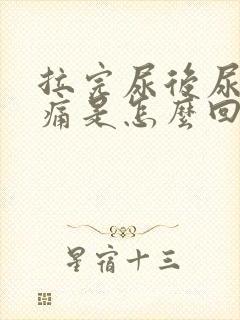 拉完尿後尿
痛是怎麼回
星宿十三